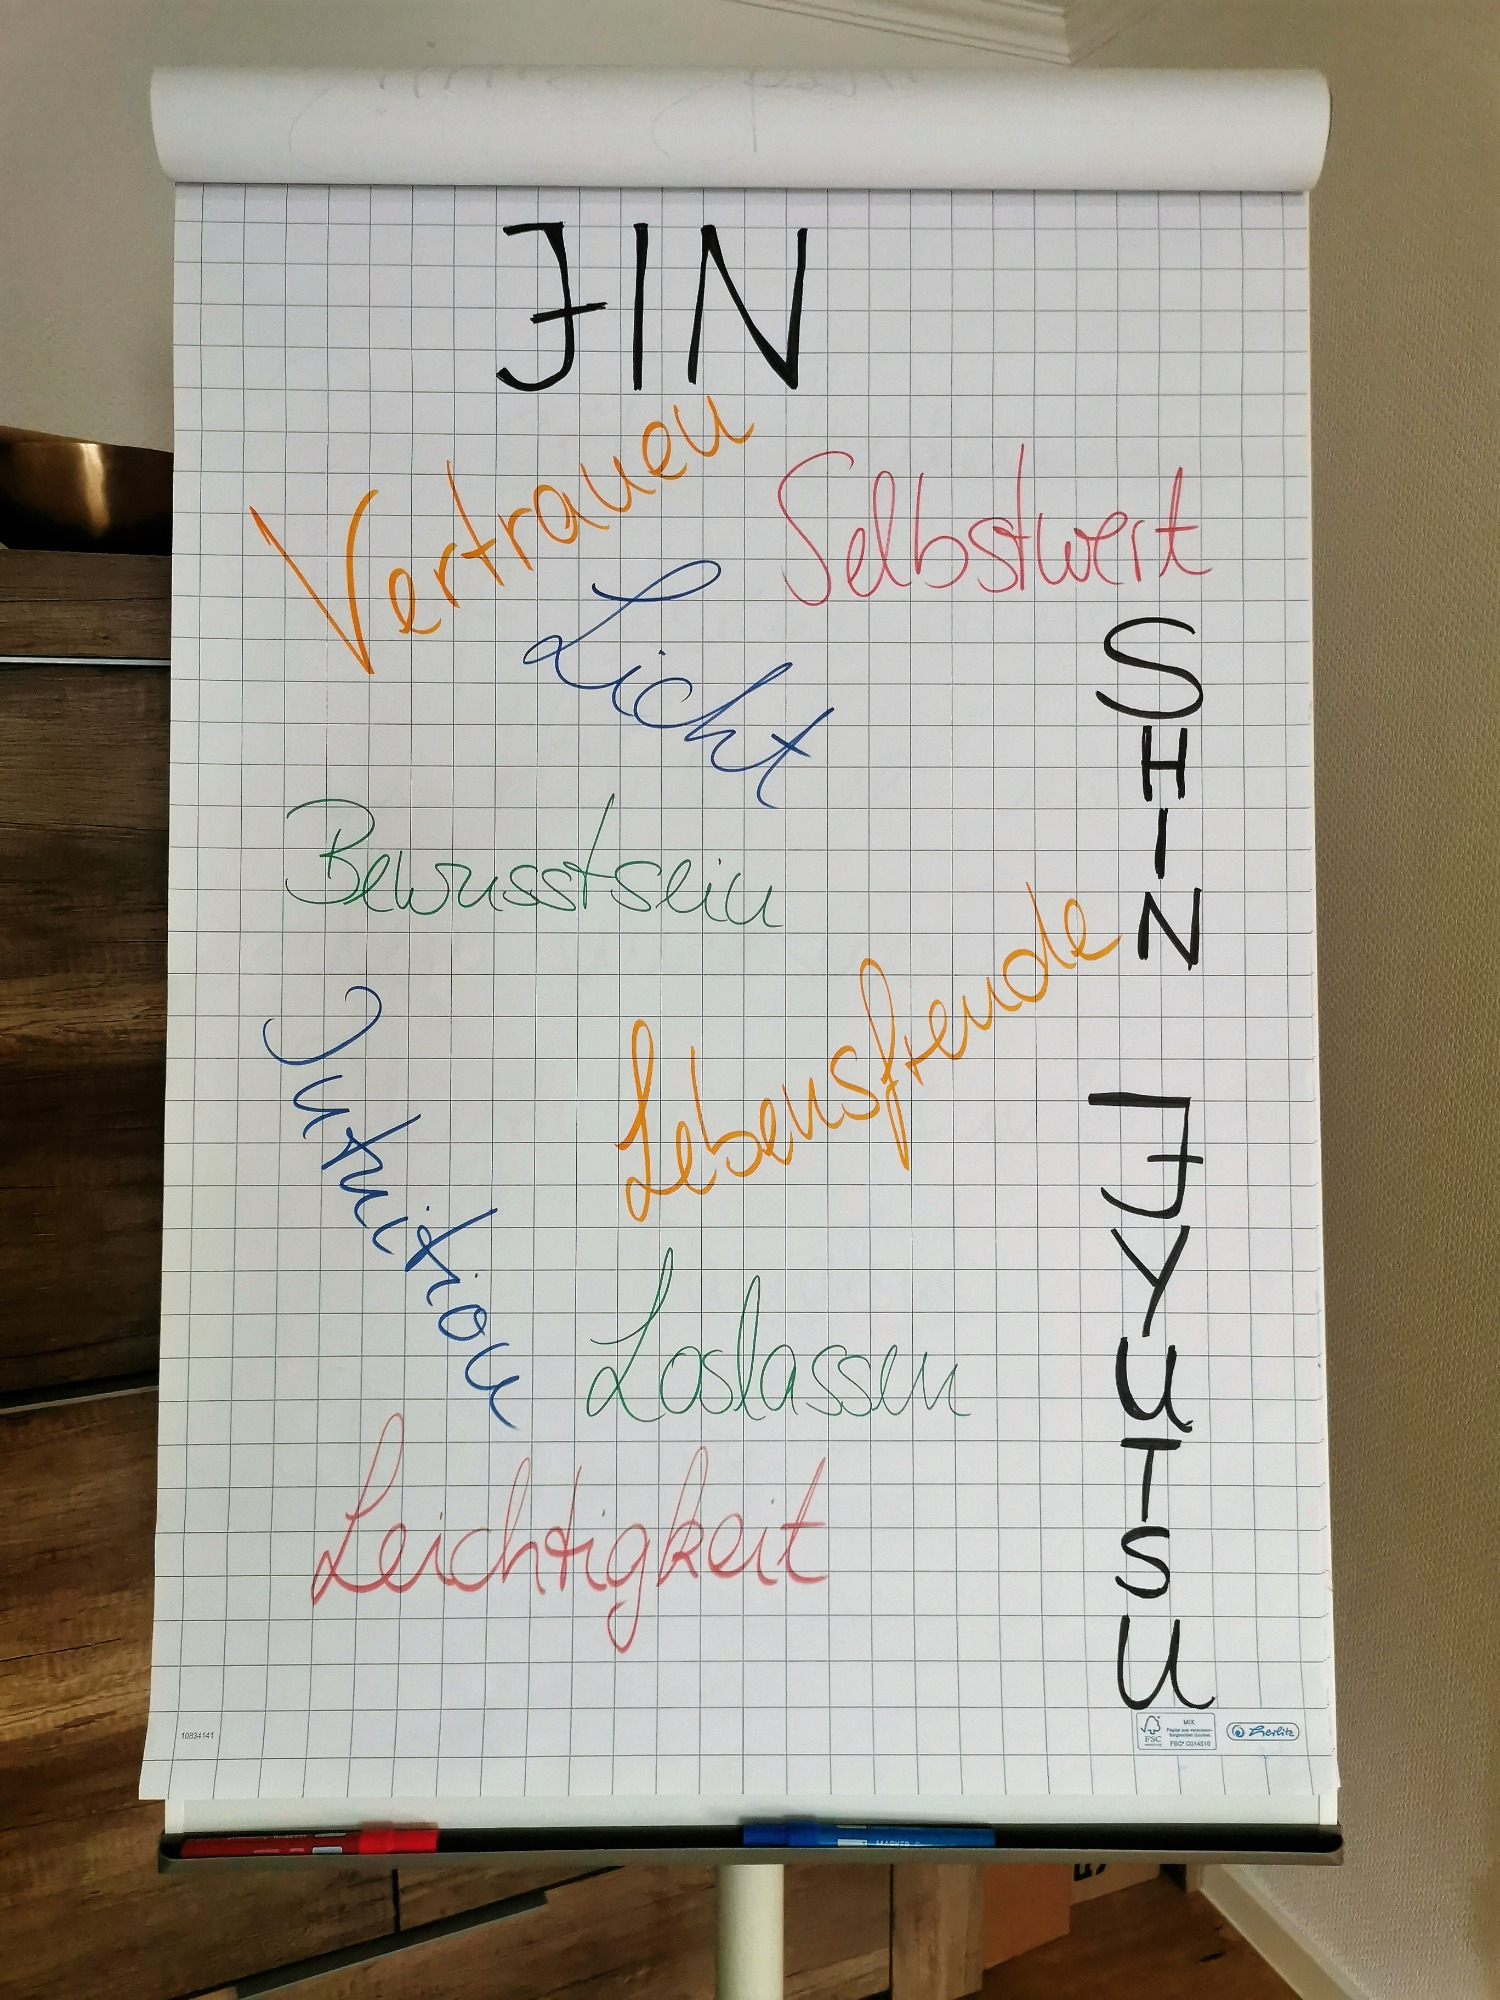 JIN
Vertrauen
Selbstwert
Licht
SHIN
Bewusstsein
Lebensfreude
Intuition
JYUTSU
Loslassen
Leichtigkeit
10834141
FSC
MIX
FSC® C014510
Herlitz
MARKER